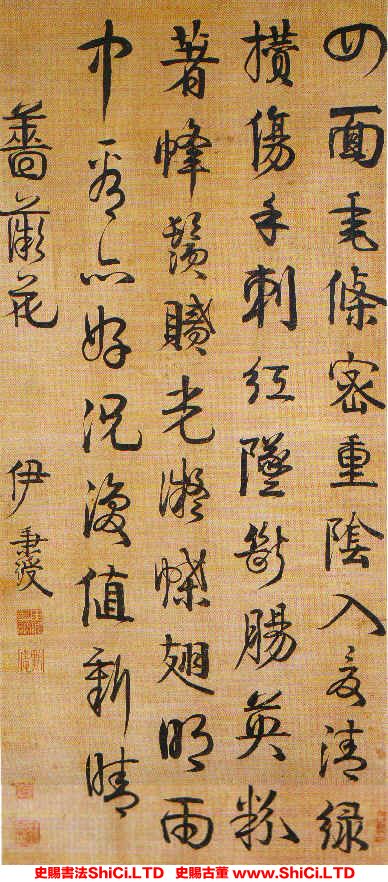 四面垂條密重陰入夏清綠
攢傷手刺紅墜斷腸英粉
著蜂鬚膩光凝蝶翅明雨
中看亦好況復值新晴
薔薇花
伊秉綬
史賜書法ShiCi.LTD 史賜古董 www.ShiCi.LTD